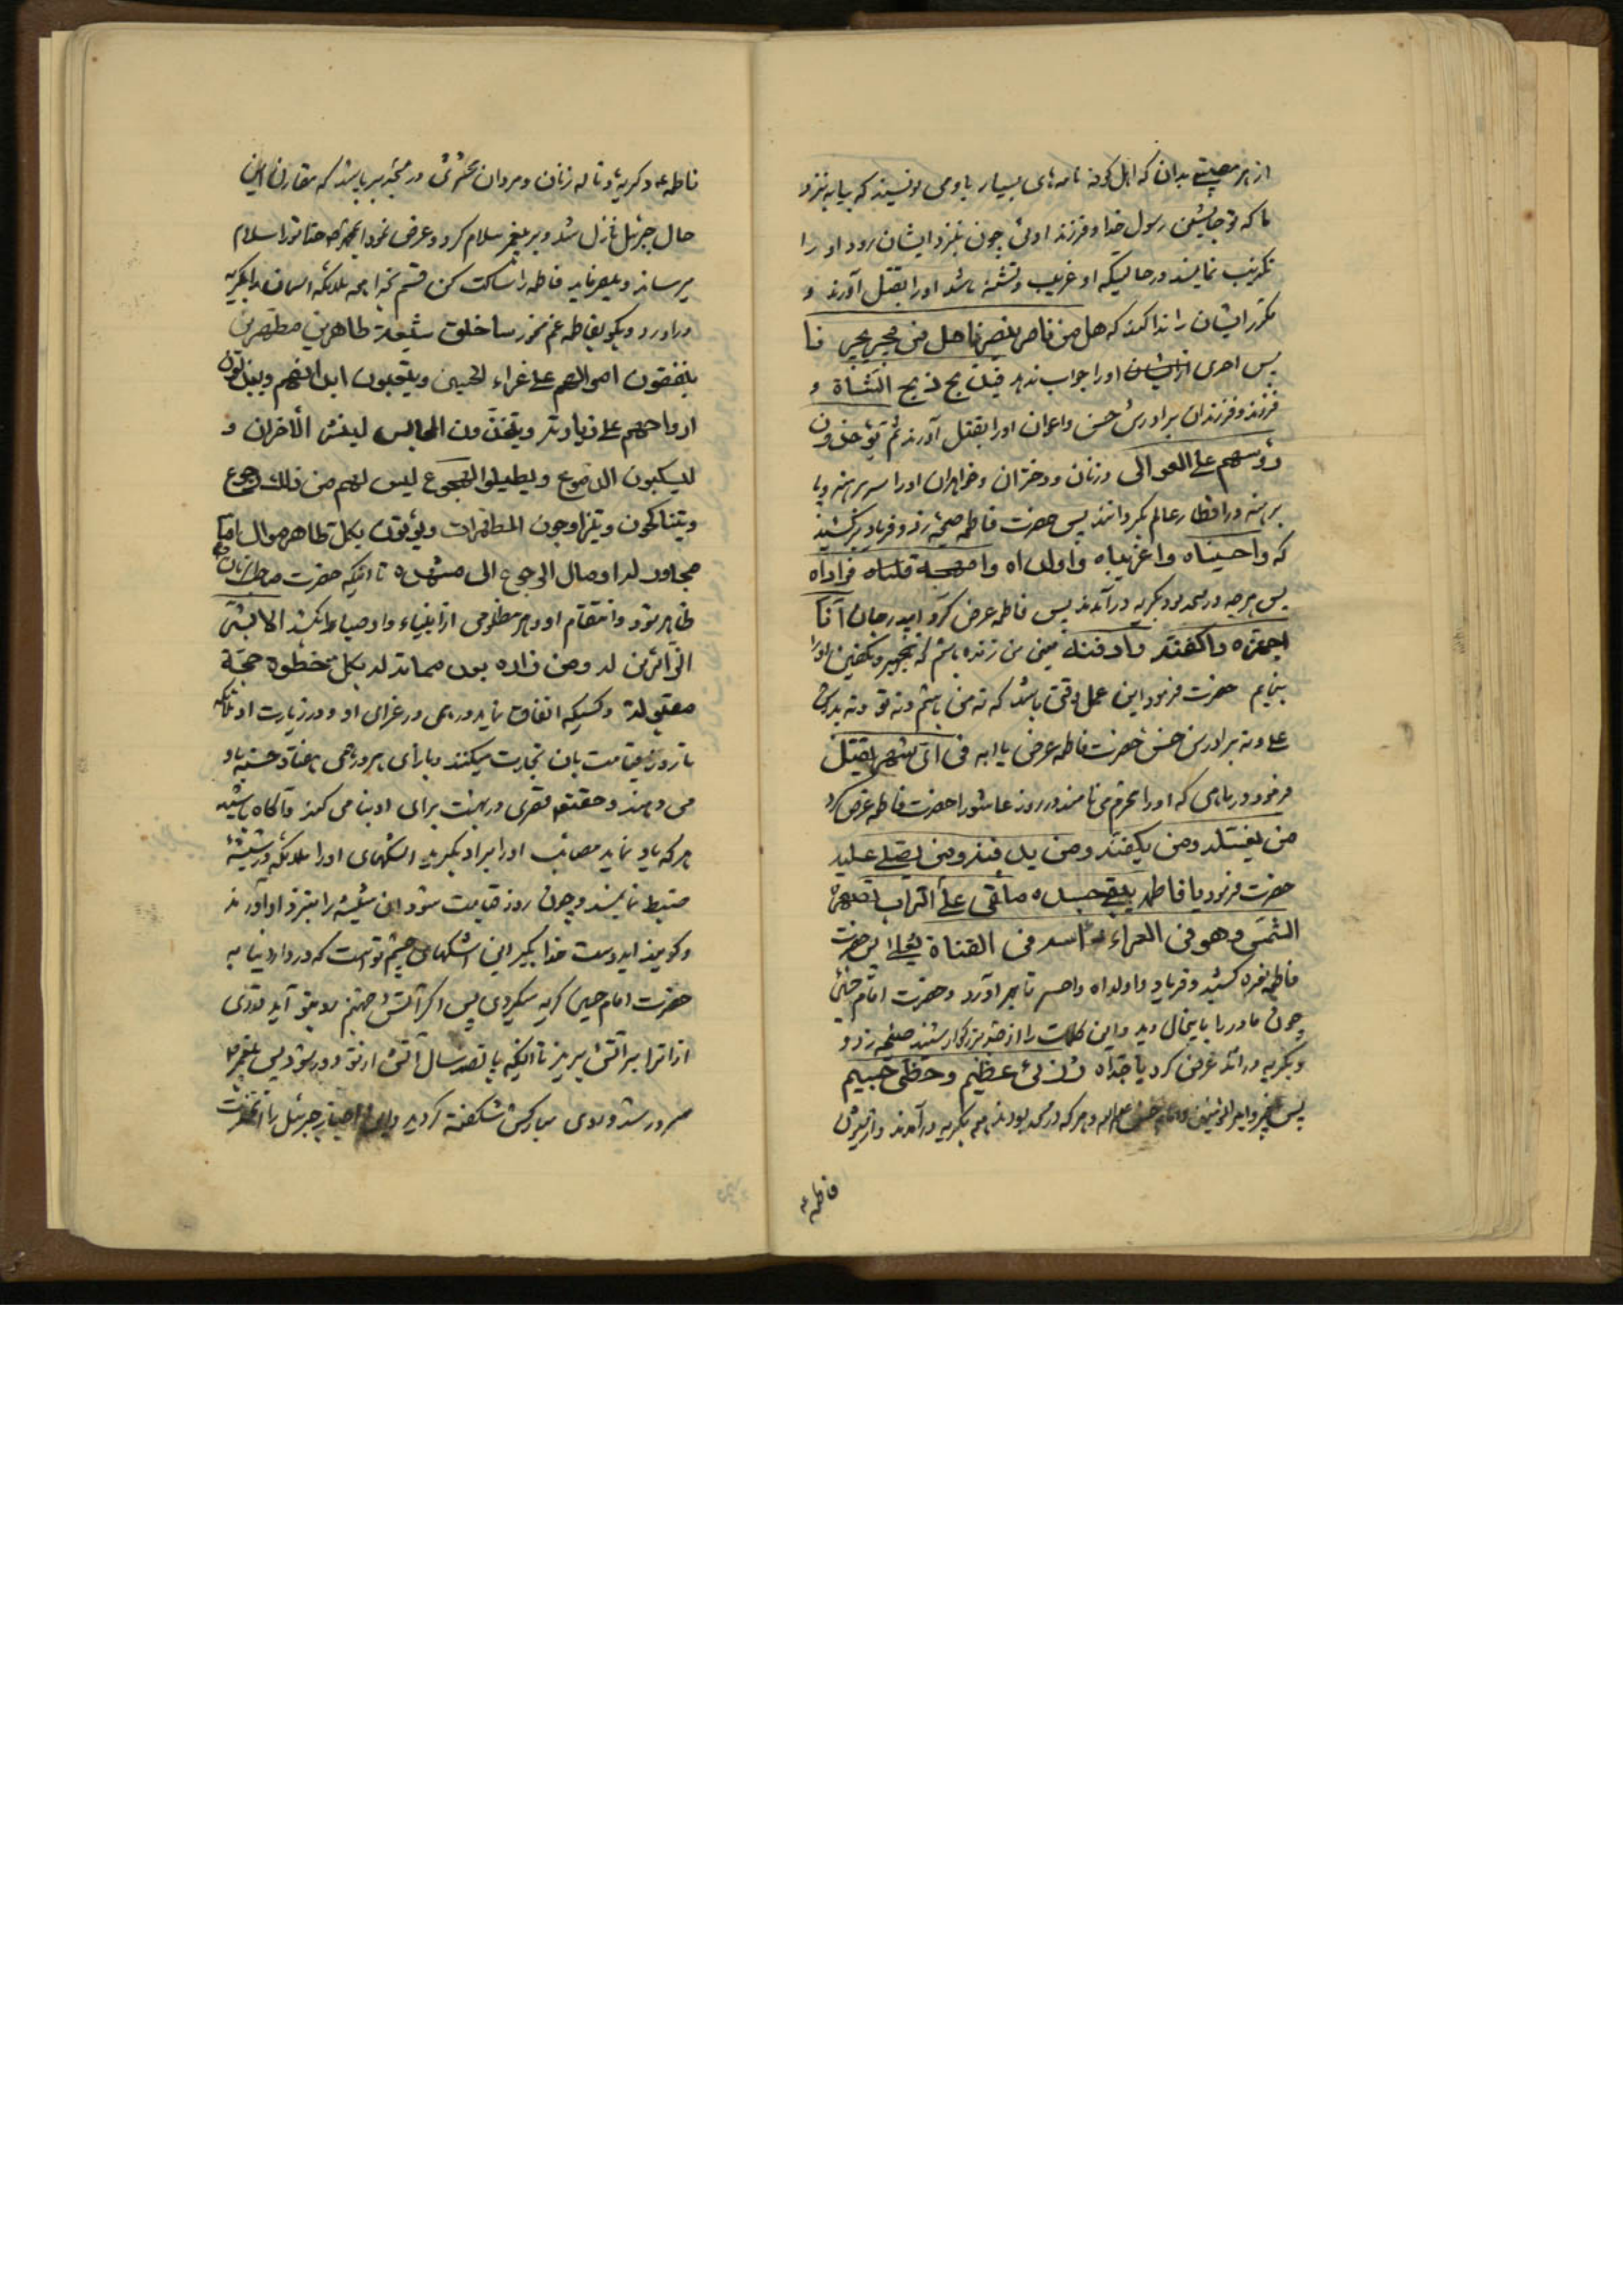 از هر مصیبتی بدان که اهل کوفه نامه‌های بسیار باو می نویسند که بیا به نزد
ما که تو جانشین رسول خدا و فرزند اوئی چون بنزد ایشان رود او را
تکذیب نمایند در حالیکه او غریب و تشنه باشد او را بقتل آورند و
مکرر ایشان را ندا کند که هل من ناصر ینصرنا هل من مجیر یجیرنا
پس احدی از ایشان او را جواب ندهد فیذبح کذبح الشاة و
فرزند و فرزندان برادرش حسن و اعوان او را بقتل آورند ثم یؤخذون
رؤسهم علی العوالی و زنان و دختران و خواهران او را سر برهنه و پا
برهنه در اقطار عالم بگردانند پس حضرت فاطمه صیحه زد و فریاد برکشید
که واحسیناه واغریباه واولداه وامهجة قلباه
پس هر چه در مسجد بود بگریه درآمدند پس فاطمه عرض کرد ای پدر جان أنا
اجهزه و اکفنه و ادفنه یعنی من زنده باشم که تجهیز و تکفین او را
بنمایم حضرت فرمود این عمل وقتی باشد که نه من باشم و نه تو و نه پدرش
علی و نه برادرش حسن حضرت فاطمه عرض یا ابه فی ای شهر یقتل
فرمود در ماهی که او را محرم می نامند در روز عاشورا حضرت فاطمه عرض کرد
من یغسله و من یکفنه و من یدفنه و من یصلی علیه
حضرت فرمود یا فاطمه یبقی جسده ملقی علی التراب تصهره
الشمس و هو فی العراء و راسه فی القناة یعلی پس حضرت
فاطمه نعره کشید و فریاد واولداه واحسرتاه برآورد و حضرت امام حسین
چون مادر را باینحال دید و این کلمات را از جد بزرگوار شنید صیحه زد و
و بگریه درآمد عرض کرد یا جداه رزئی عظیم و خطبی جسیم
پس پیغمبر و امیرالمؤمنین و امام حسن و هر که در مسجد بودند همه بگریه درآمدند و از شیون
فاطمه ع
فاطمه ع و گریه و ناله زنان و مردان محشری در مسجد برپا شد که مقارن این
حال جبرئیل نازل شد و بر پیغمبر سلام کرد و عرض نمود ای محمد ص خدا تو را سلام
میرساند و میفرماید فاطمه را ساکت کن قسم بخودم همه ملائکه آسمان را بگریه
درآورد و بگو بفاطمه غم مخور ساخلق شیعة طاهرین مطهرین
ینفقون اموالهم علی عزاء الحسین و یتعبون ابدانهم و یبذلون
ارواحهم علی زیارته و یتخذون المجالس لینشر الأحزان و
لیسکبون الدموع و یطیلوا الهجوع لیس لهم من ذلک رجوع
و یتناکحون و یتزاوجون المطهرات و یؤتون بکل طاهر موال اما
مجاور له او مال الرجوع الی مشهده تا اینکه حضرت صاحب الزمان
ظاهر شود و انتقام او و هر مظلومی از انبیاء و اوصیاء را بکشد الا بشر
الزائرین له و من زاره بعد مماته له بکل خطوة حجة
مقبولة و کسیکه انفاق نماید درهمی در عزای او و در زیارت او ملائکه
تا روز قیامت بان تجارت میکنند و بازای هر درهمی هفتاد حسنه باو
می دهند و حقتعالی قصری در بهشت برای او بنا می کند و آگاه باشید
هر که یاد نماید مصائب او را و بر او بگرید اشکهای او را ملائکه در شیشه
ضبط نمایند و چون روز قیامت شود این شیشه را بنزد او آورند
و گویند ای دوست خدا بگیر این اشکهای چشم تو است که در دار دنیا به
حضرت امام حسین گریه میکردی پس اگر آتش جهنم رو بتو آید قدری
از آن را بر آتش بریز تا اینکه پانصد سال آتش از تو دور شود پس پیغمبر ص
مسرور شد و روی مبارکش شکفته گردید و این اخبار جبرئیل را آنحضرت